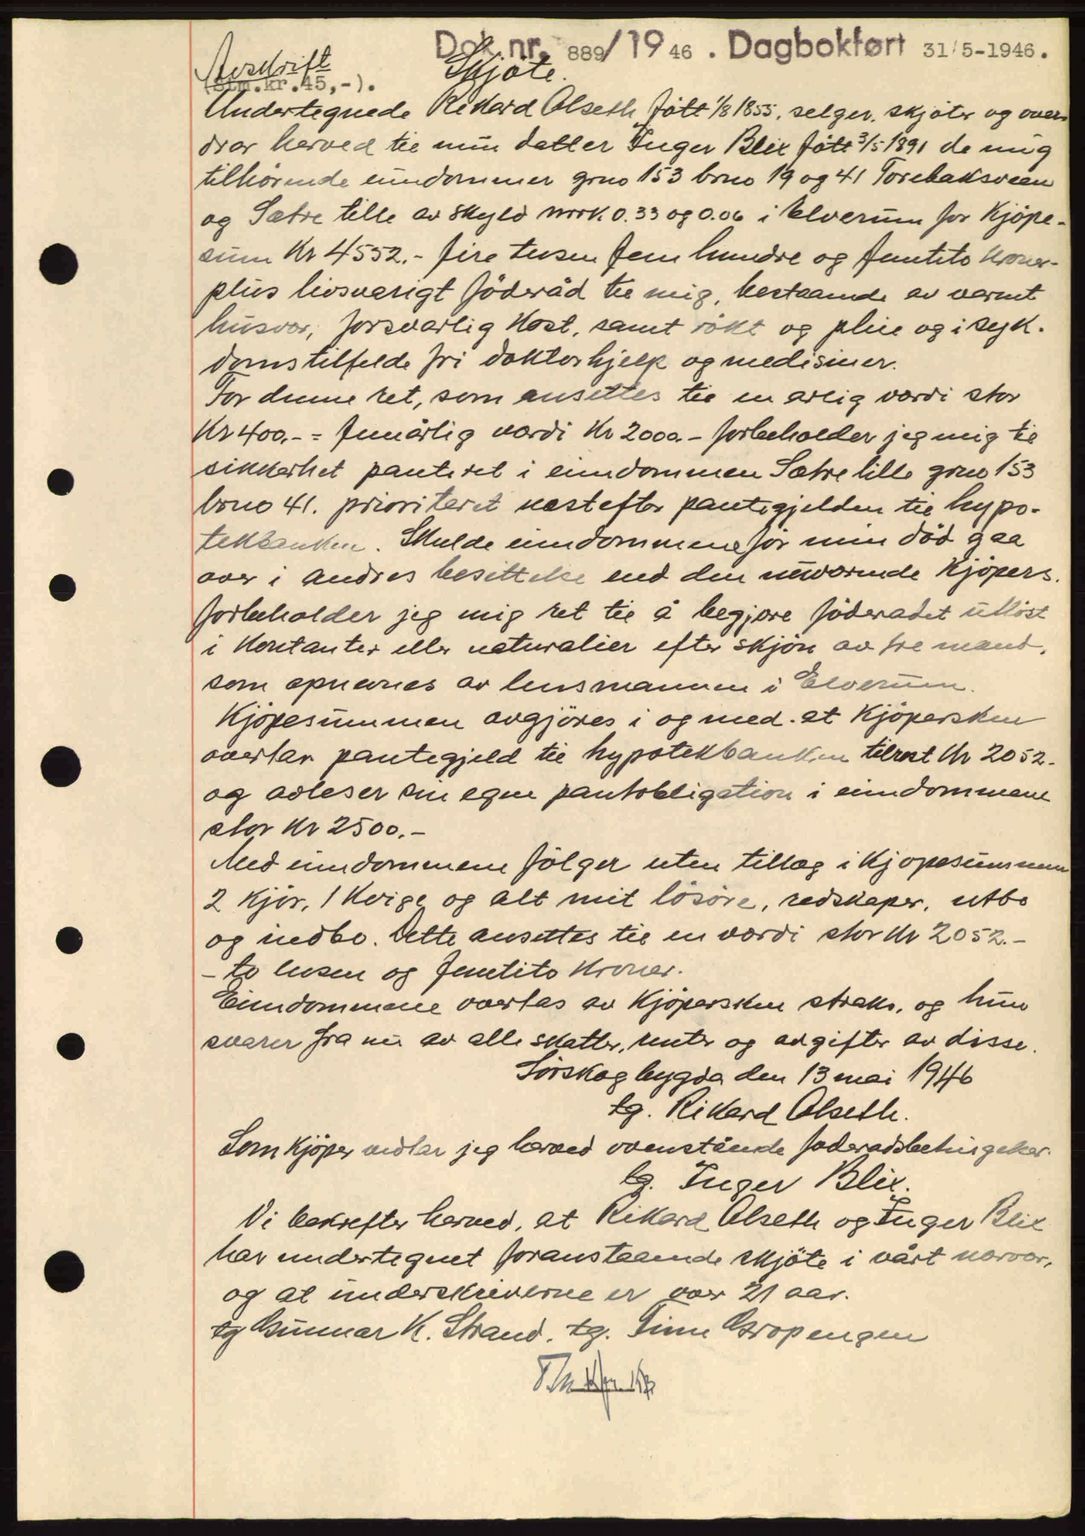 Dok. nr. 889/1946. Dagbokført 31/5-1946.
Avskrift Skjöte.
(Stm.kr.45,-).
Undertegnede Rikard Olseth född 1/8 1855, selger, skjöter og over-
drar herved til min datter Inger Blix född 3/5 1891 de mig
tilhörende eiendommer grno 153 brno 19 og 41 Torebaksveen
og Sætre lille av skyld mrk. 0.33 og 0.06 i Elverum for Kjöpe-
sum Kr 4552.- fire tusen fem hundre og femtito Kroner-
plus livsvarigt föderåd til mig, bestaaende av varmt
husvær, forsvarlig Kost, samt rökt og pleie og i syk-
domstilfelde fri doktorhjelp og medisiner.
For denne ret, som ansettes til en årlig værdi stor
Kr 400.- = femårlig værdi Kr 2000.- forbeholder jeg mig til
sikkerhet panteret i eiendommen Sætre lille grno 153
brno 41. prioritert næst efter pantegjelden til hypo-
tekbanken. Skulde eiendommene för min död gaa
over i andres besittelse end den nuværende Kjöpers.
forbeholder jeg mig ret til å begjære föderådet utlöst
i Kontanter eller naturalier efter skjön av tre mænd.
som opnevnes av lensmannen i Elverum.
Kjöpesummen avgjöres i og med at Kjöpersken
overtar pantegjeld til hypotekbanken tilrest Kr 2052.-
og avleser sin egen pantobligation i eiendommene
stor Kr 2500.-
Med eiendommene fölger uten tillæg i Kjöpesummen
2 Kjör, 1 Kvige og alt mit lösöre, redskaper, utbo
og indbo. Dette ansettes til en værdi stor Kr 2052.-
- to tusen og femtito Kroner.
Eiendommene overtas av Kjöpersken straks, og hun
svarer fra nu av alle skatter, renter og avgifter av disse.
Sörskogbygda den 13 mai 1946
tg. Rikard Olseth.
Som Kjöper vedtar jeg herved ovenstående föderådsbetingelser.
tg. Inger Blix.
Vi bekrefter herved, at Rikard Olseth og Inger Blix
har undertegnet foranstaaende skjöte i vårt nærvær,
og at underskriverne er over 21 aar.
tg Gunnar K. Strand. tg. Finn Gropengen